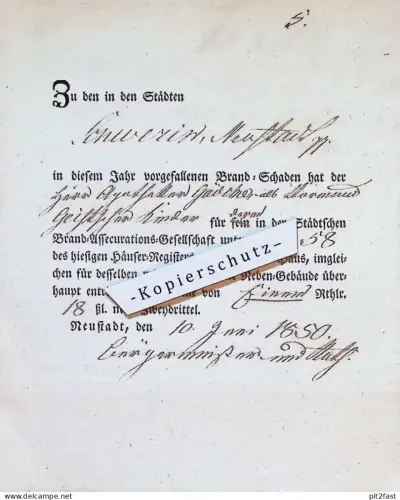 5.
Zu den in den Städten
Schwerin, Neustadt pp.
in diesem Jahr vorgefallenen Brand-Schaden hat der
Herr Apotheker als Vormund
Kinder für deren sein in der Städtschen
Brand-Assecurations-Gesellschaft unter 58
des hiesigen Häuser-Registers Haus, ingleichen
chen für desselben Neben-Gebäude über-
haupt von Einem Rthlr.
18 ßl. Zweydrittel.
Neustadt, den 10. Juni 1850.
Bürgermeister und Rath.
-Kopierschutz-
www.delcampe.net
pit2fast